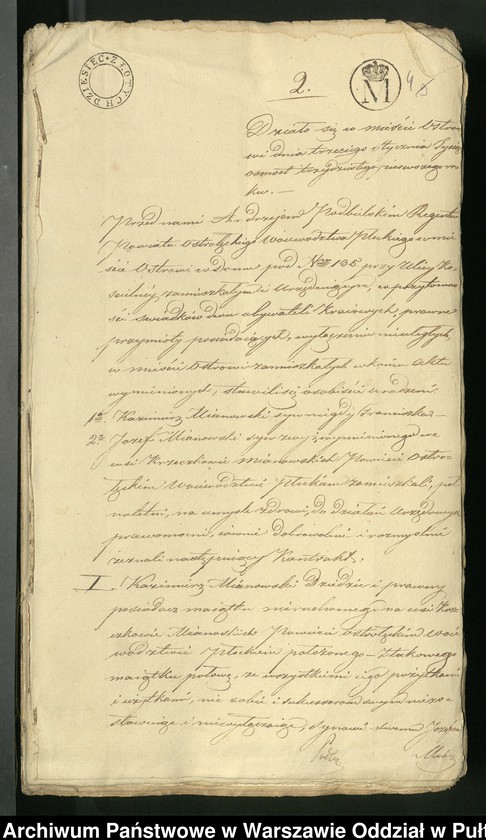 DZIESIĘC ZŁOTYCH
2.
M
Działo się w mieście Ostro-
wi dnia trzeciego stycznia Tysiąc
osmset trzydziestego pierwszego ro-
ku. —
Przed nami Andrzejem Podbielskim Regentem
Powiatu Ostrołęckiego Województwa Płockiego w mie-
ście Ostrowi w Domu pod Nrem 135 przy Ulicy Ko-
ścielnej zamieszkałym i Urzędującym, w przytomno-
ści świadków dwu obywateli Kraiowych, prawne
przymioty posiadających, wyłączeniu nieuległych,
w mieście Ostrowi zamieszkałych w końcu Aktu
wymienionych, stawili się osobiście urodzeni
1o Kazimierz Mianowski syn niegdy Franciszka —
2o Jozef Mianowski syn wyż wymienionego we
wsi Krzeczkowie Mianowskich Powiecie Ostro-
łęckim Województwie Płockim zamieszkali, peł-
noletni, na umyśle zdrowi, do działań Urzędowych
prawomocni, iawnie dobrowolnie i rozmyślnie
zeznali następuiący Kontrakt.
I. Kazimierz Mianowski Dziedzic i prawny
posiadacz maiątku nieruchomego na wsi Krze-
czkowie Mianowskich Powiecie Ostrołęckim Woie-
wództwie Płockim położonego — Takowego
maiątku połowę, ze wszystkiemi iego pożytkami
i użytkami, nic sobie i sukcessorom swym niezo-
stawuiąc i niewyłączaiąc, Synowi swemu Jozefowi
Archiwum Państwowe w Warszawie Oddział w Puł